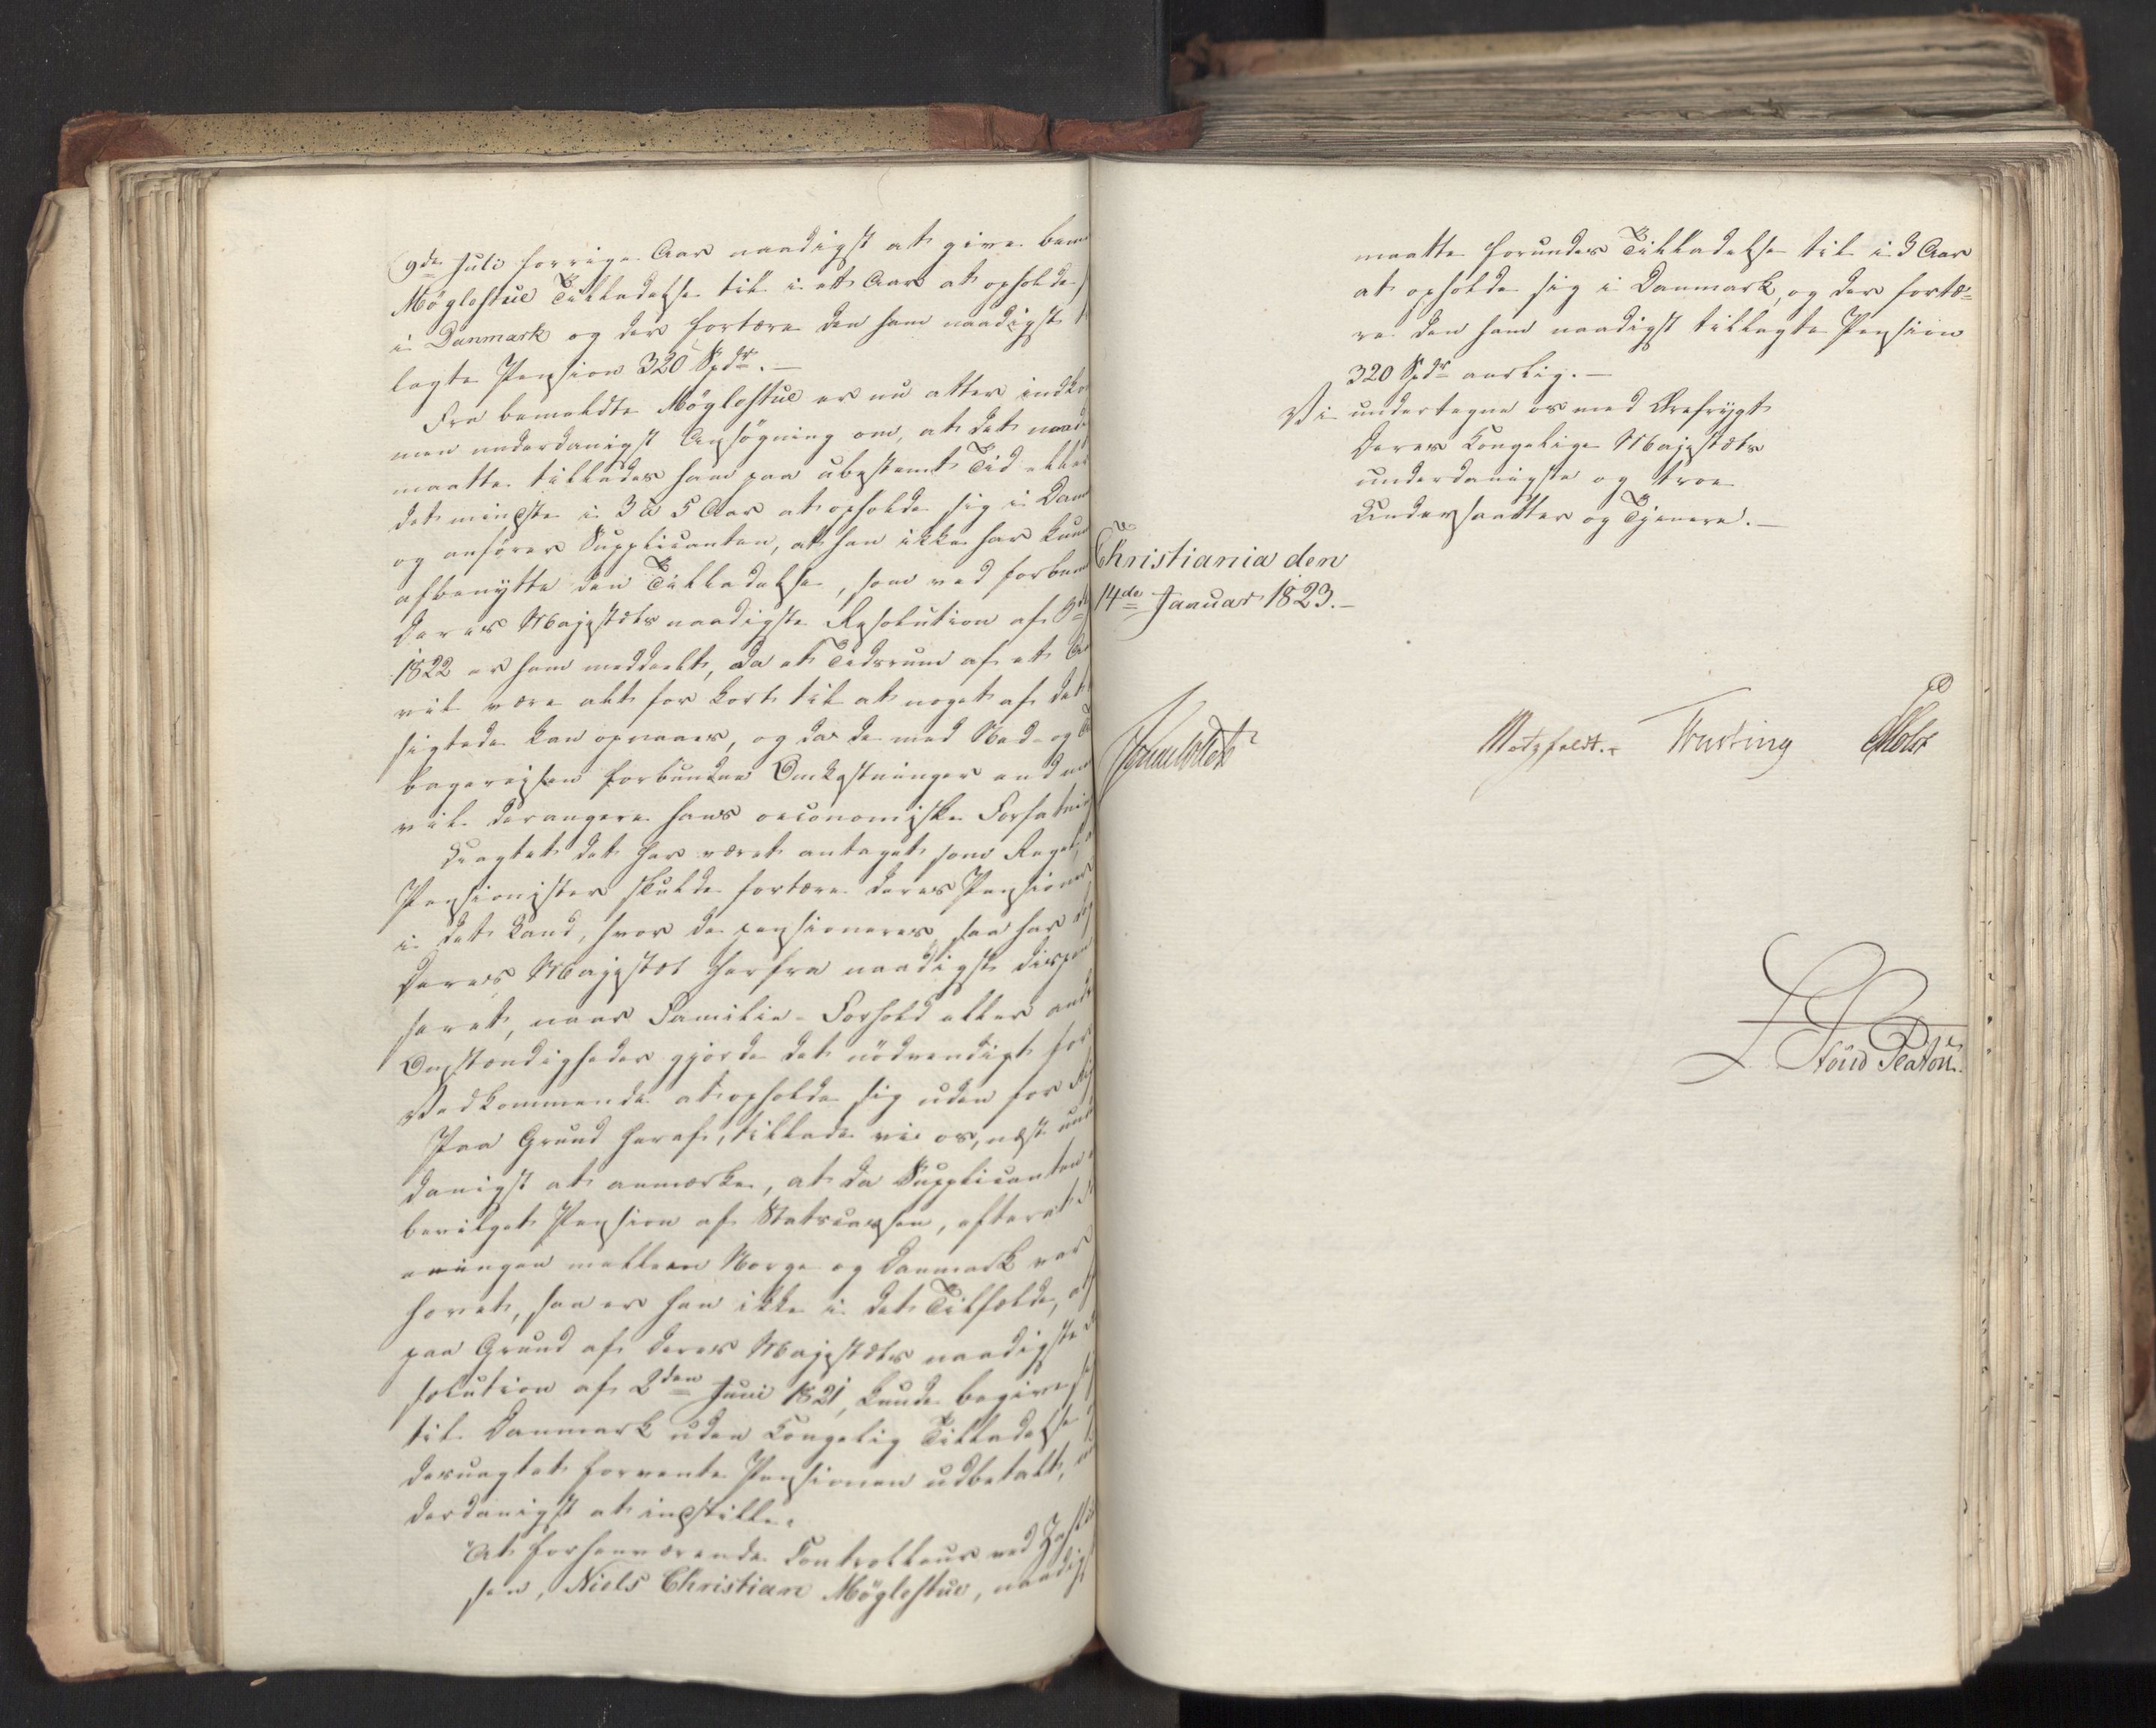 9de Juli forrige Aar naadigst at give bem
Möglestue Tilladelse til i et Aar at opholde
i Danmark og der fortære den ham naadigst
lagte Pension 320 Spdr. —
Fra bemeldte Möglestue er nu atter indko
men underdanigst Ansögning om, at det naad
maatte tillades ham paa ubestemt Tid eller
det mindste i 3 à 5 Aar at opholde sig i Dan
og anförer Supplicanten, at han ikke har kun
afbenytte den Tilladelse, som ved forben
Deres Majestæts naadigste Resolution af 9de
1822 er ham meddeelt, da et Tidsrum af et Aa
vil være alt for kort til at noget af det
sigtede kan opnaaes, og da de med Ned- og Ti
bagereisen forbundne Omkostninger end me
vil derangere hans oeconomiske Forfatnin
Uagtet det har været antaget som Regel, a
Pensionister skulde fortære deres Pensioner
i det Land, hvor de pensioneres, saa har do
Deres Majestæt herfra naadigst dispen
seret, naar Familie-Forhold eller and
Omstændigheder gjorde det nödvendigt for
Vedkommende at opholde sig uden for Ri
Paa Grund heraf, tillade vi os, næst und
danigst at anmærke, at da Supplicanten
bevilget Pension af Statscassen, efterat
eningen mellem Norge og Danmark var
hævet, saa er han ikke i det Tilfælde, at
paa Grund af Deres Majestæts naadigste
solution af 2den Juni 1821, kunde begive si
til Danmark uden Kongelig Tilladelse
desuagtet forvente Pensionen udbetalt, un
derdanigst at indstille:
At forhenværende Controlleur ved Zahlcas
sen, Niels Christian Möglestue, naadigst
maatte forundes Tilladelse til i 3 Aar
at opholde sig i Danmark, og der fortæ=
re den ham naadigst tillagte Pension
320 Spdr aarlig. —
Vi undertegne os med Ærefrygt
Deres Kongelige Majestæts
underdanigste og troe
Undersaatter og Tjenere. —
Christiania den
14de Januar 1823. —
Motzfeldt. Treschow Holst